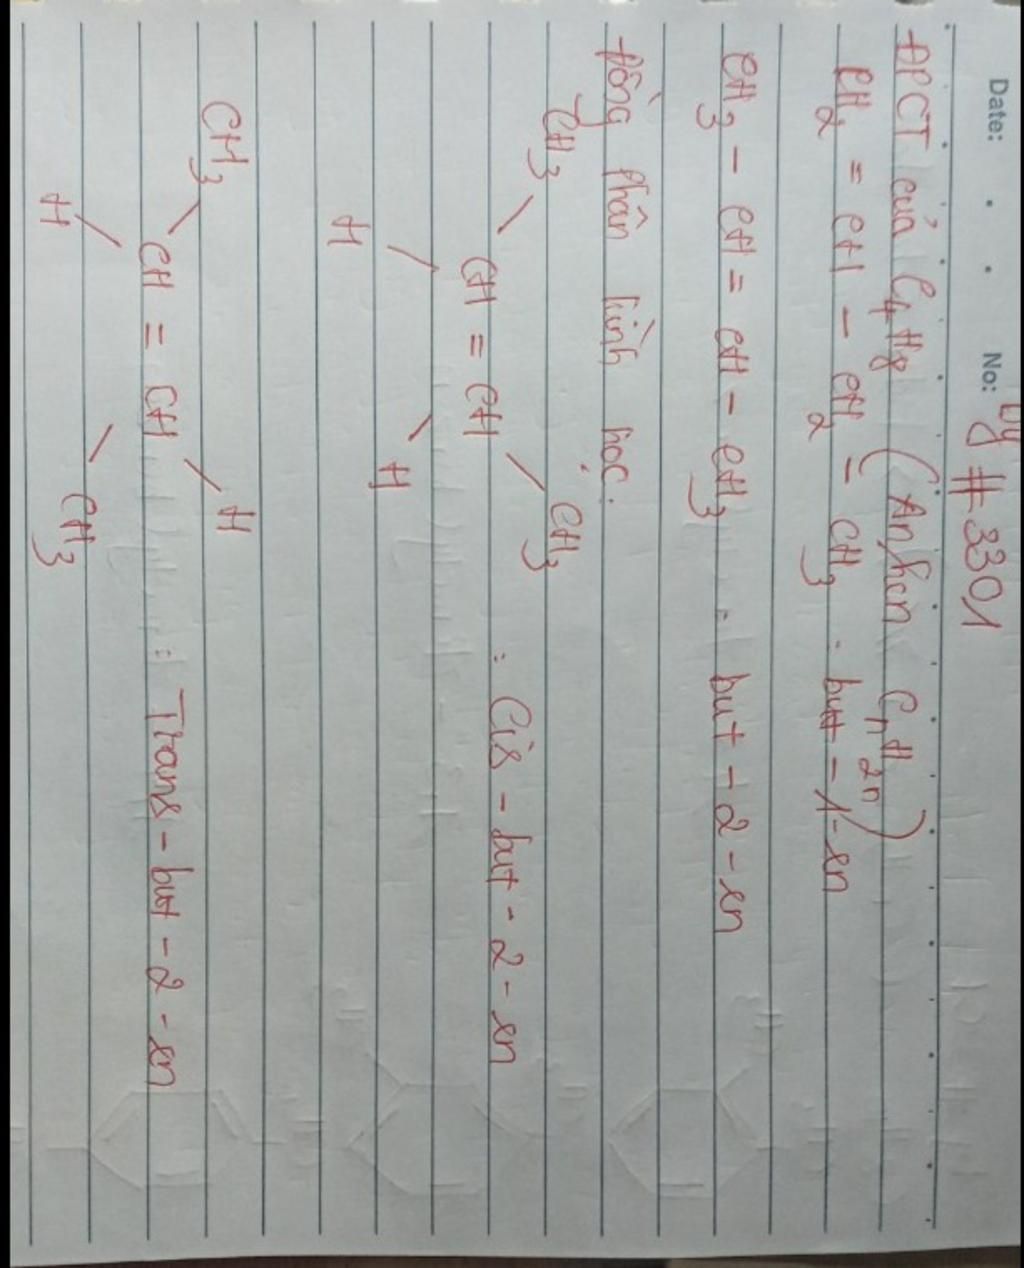 Date: No: by #3301
ĐPCT của C4H8 (Anken CnH2n)
CH2 = CH - CH2 - CH3 : but - 1 - en
CH3 - CH = CH - CH3 : but - 2 - en
Đồng phân hình học.
CH3 CH3
CH = CH : Cis - but - 2 - en
H H
CH3 H
CH = CH : Trans - but - 2 - en
H CH3